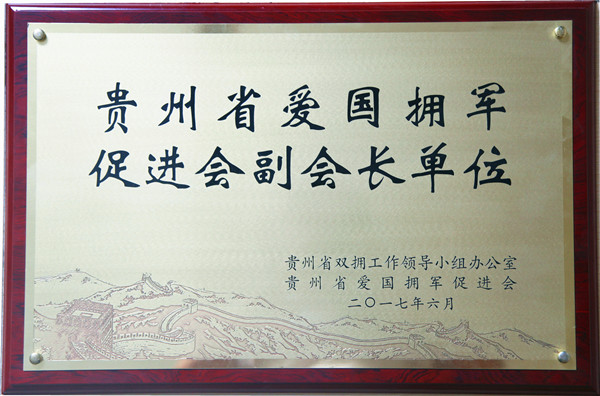 贵州省爱国拥军
促进会副会长单位
贵州省双拥工作领导小组办公室
贵州省爱国拥军促进会
二〇一七年六月